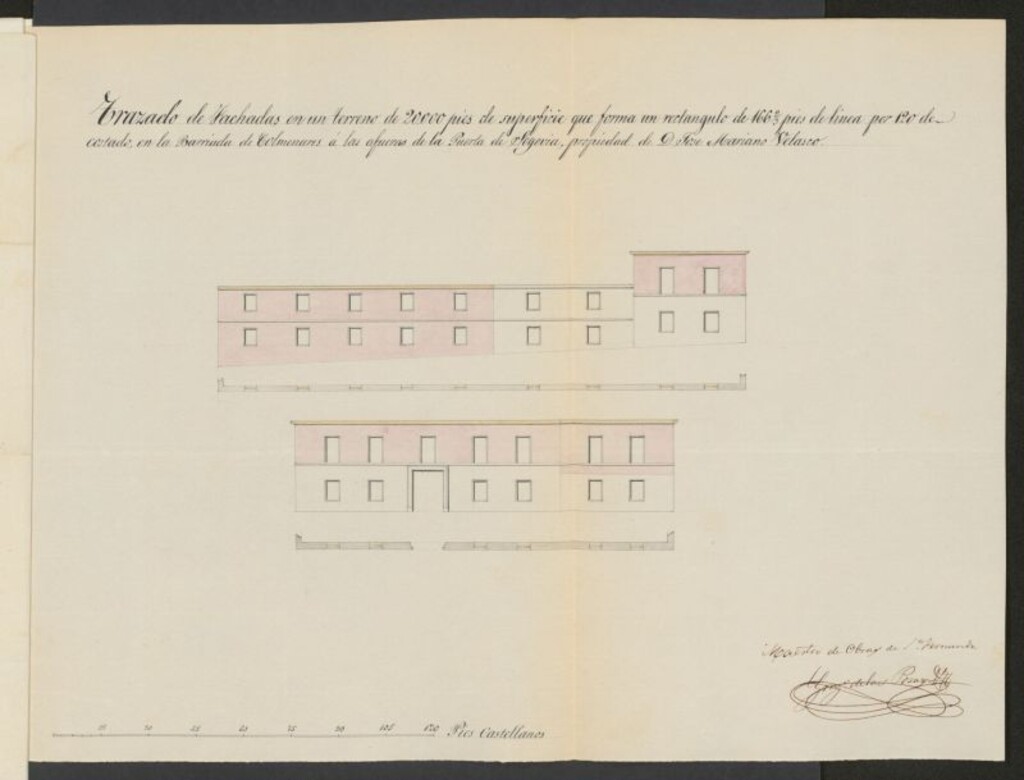 Trazado de Fachadas en un terreno de 20000 pies de superficie que forma un rectangulo de 166⅔ pies de linea por 120 de
costado, en la Barriada de Colmenares á las afueras de la Puerta de Segovia, propiedad de D. Jose Mariano Velasco.
Maestro de Obras de
15 30 45 60 75 90 105 120 Pies Castellanos